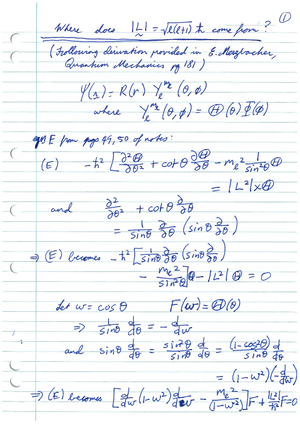 ①
Where does |L| = √l(l+1) ħ come from?
(Following derivation provided in E. Merzbacher,
Quantum Mechanics pg 181)
ψ(r) = R(r) Y_l^{m_l}(θ,φ)
where Y_l^{m_l}(θ,φ) = Θ(θ)Φ(φ)
E from page 49, 50 of notes:
(E) -ħ² [∂²Θ/∂θ² + cot θ ∂Θ/∂θ - m_l² 1/sin²θ Θ
= |L²| × Θ
and ∂²/∂θ² + cot θ ∂/∂θ
= 1/sin θ ∂/∂θ (sin θ ∂/∂θ)
⇒ (E) becomes -ħ² [1/sin θ ∂/∂θ (sin θ ∂/∂θ)
- m_l²/sin²θ]Θ - |L²| Θ = 0
Let w = cos θ F(w) = Θ(θ)
⇒ 1/sin θ d/dθ = - d/dw
and sin θ d/dθ = sin²θ/sin θ d/dθ = (1-cos²θ)/sin θ d/dθ
= (1-w²)(-d/dw)
⇒ (E) becomes [d/dw (1-w²) d/dw - m_l²/(1-w²)]F + |L²|/ħ² F = 0